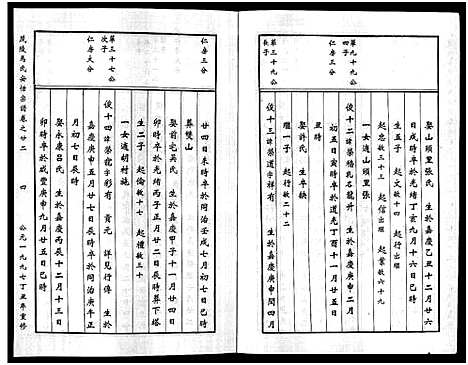 第九十九公
四子
第三十九公
長子
仁房三分
娶山頭里張氏 生於嘉慶乙丑十二月廿六
日戌時卒於光緒丁亥九月十六日巳時
生五子 起文敏十四 起行出繼
起忠敏三十 起信出繼 起業敏六十九
一女適山頭里張
俊十二諱榮橋孔名龍升 生於嘉慶庚申四月
初五日寅時卒於道光丁酉十一月廿五日
丑時
娶許氏 生卒缺
繼一子 起行敏二十二
俊十三諱榮道字祥有 生於嘉慶庚申閏四月
仁房三分
第三十七公
次子
仁房大分
廿四日未時卒於同治壬戌七月初七日巳時
葬雙山
娶前宅吳氏 生於嘉慶甲子十一月廿四日
卯時卒於光緒丙子二月十八日辰時葬下塔
生二子 起倫敏十七 起禮敏三十
一女適胡村施
俊十四諱榮龍字彩有 貢元 詳見行傳 生於
嘉慶庚申五月廿七日辰時卒於同治庚午正
月初七日辰時
娶永康呂氏 生於嘉慶丙辰十二月十三日
卯時卒於咸豐庚申九月廿五日巳時
茂陵馬氏安恬宗譜卷之廿二 四 公元一九九七丁丑年重修